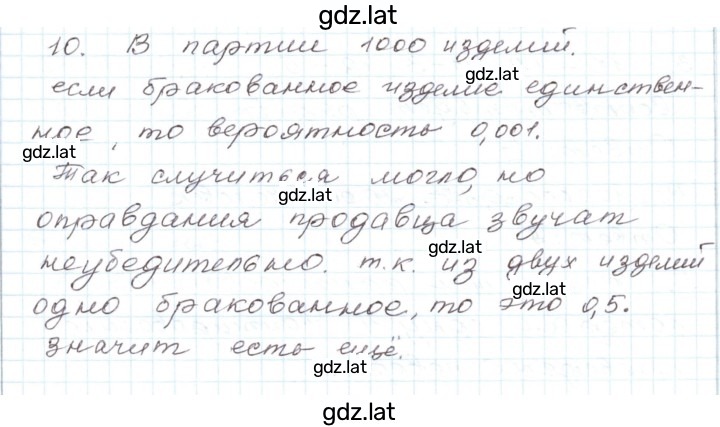 gdz.lat
10. В партии 1000 изделий.
gdz.lat
если бракованное изделие единствен-
ное, то вероятность 0,001.
gdz.lat
Так случиться могло, но
gdz.lat
оправдания продавца звучат
gdz.lat
неубедительно. т.к. из двух изделий
gdz.lat
одно бракованное, то это 0,5.
значит есть ещё.
gdz.lat
gdz.lat